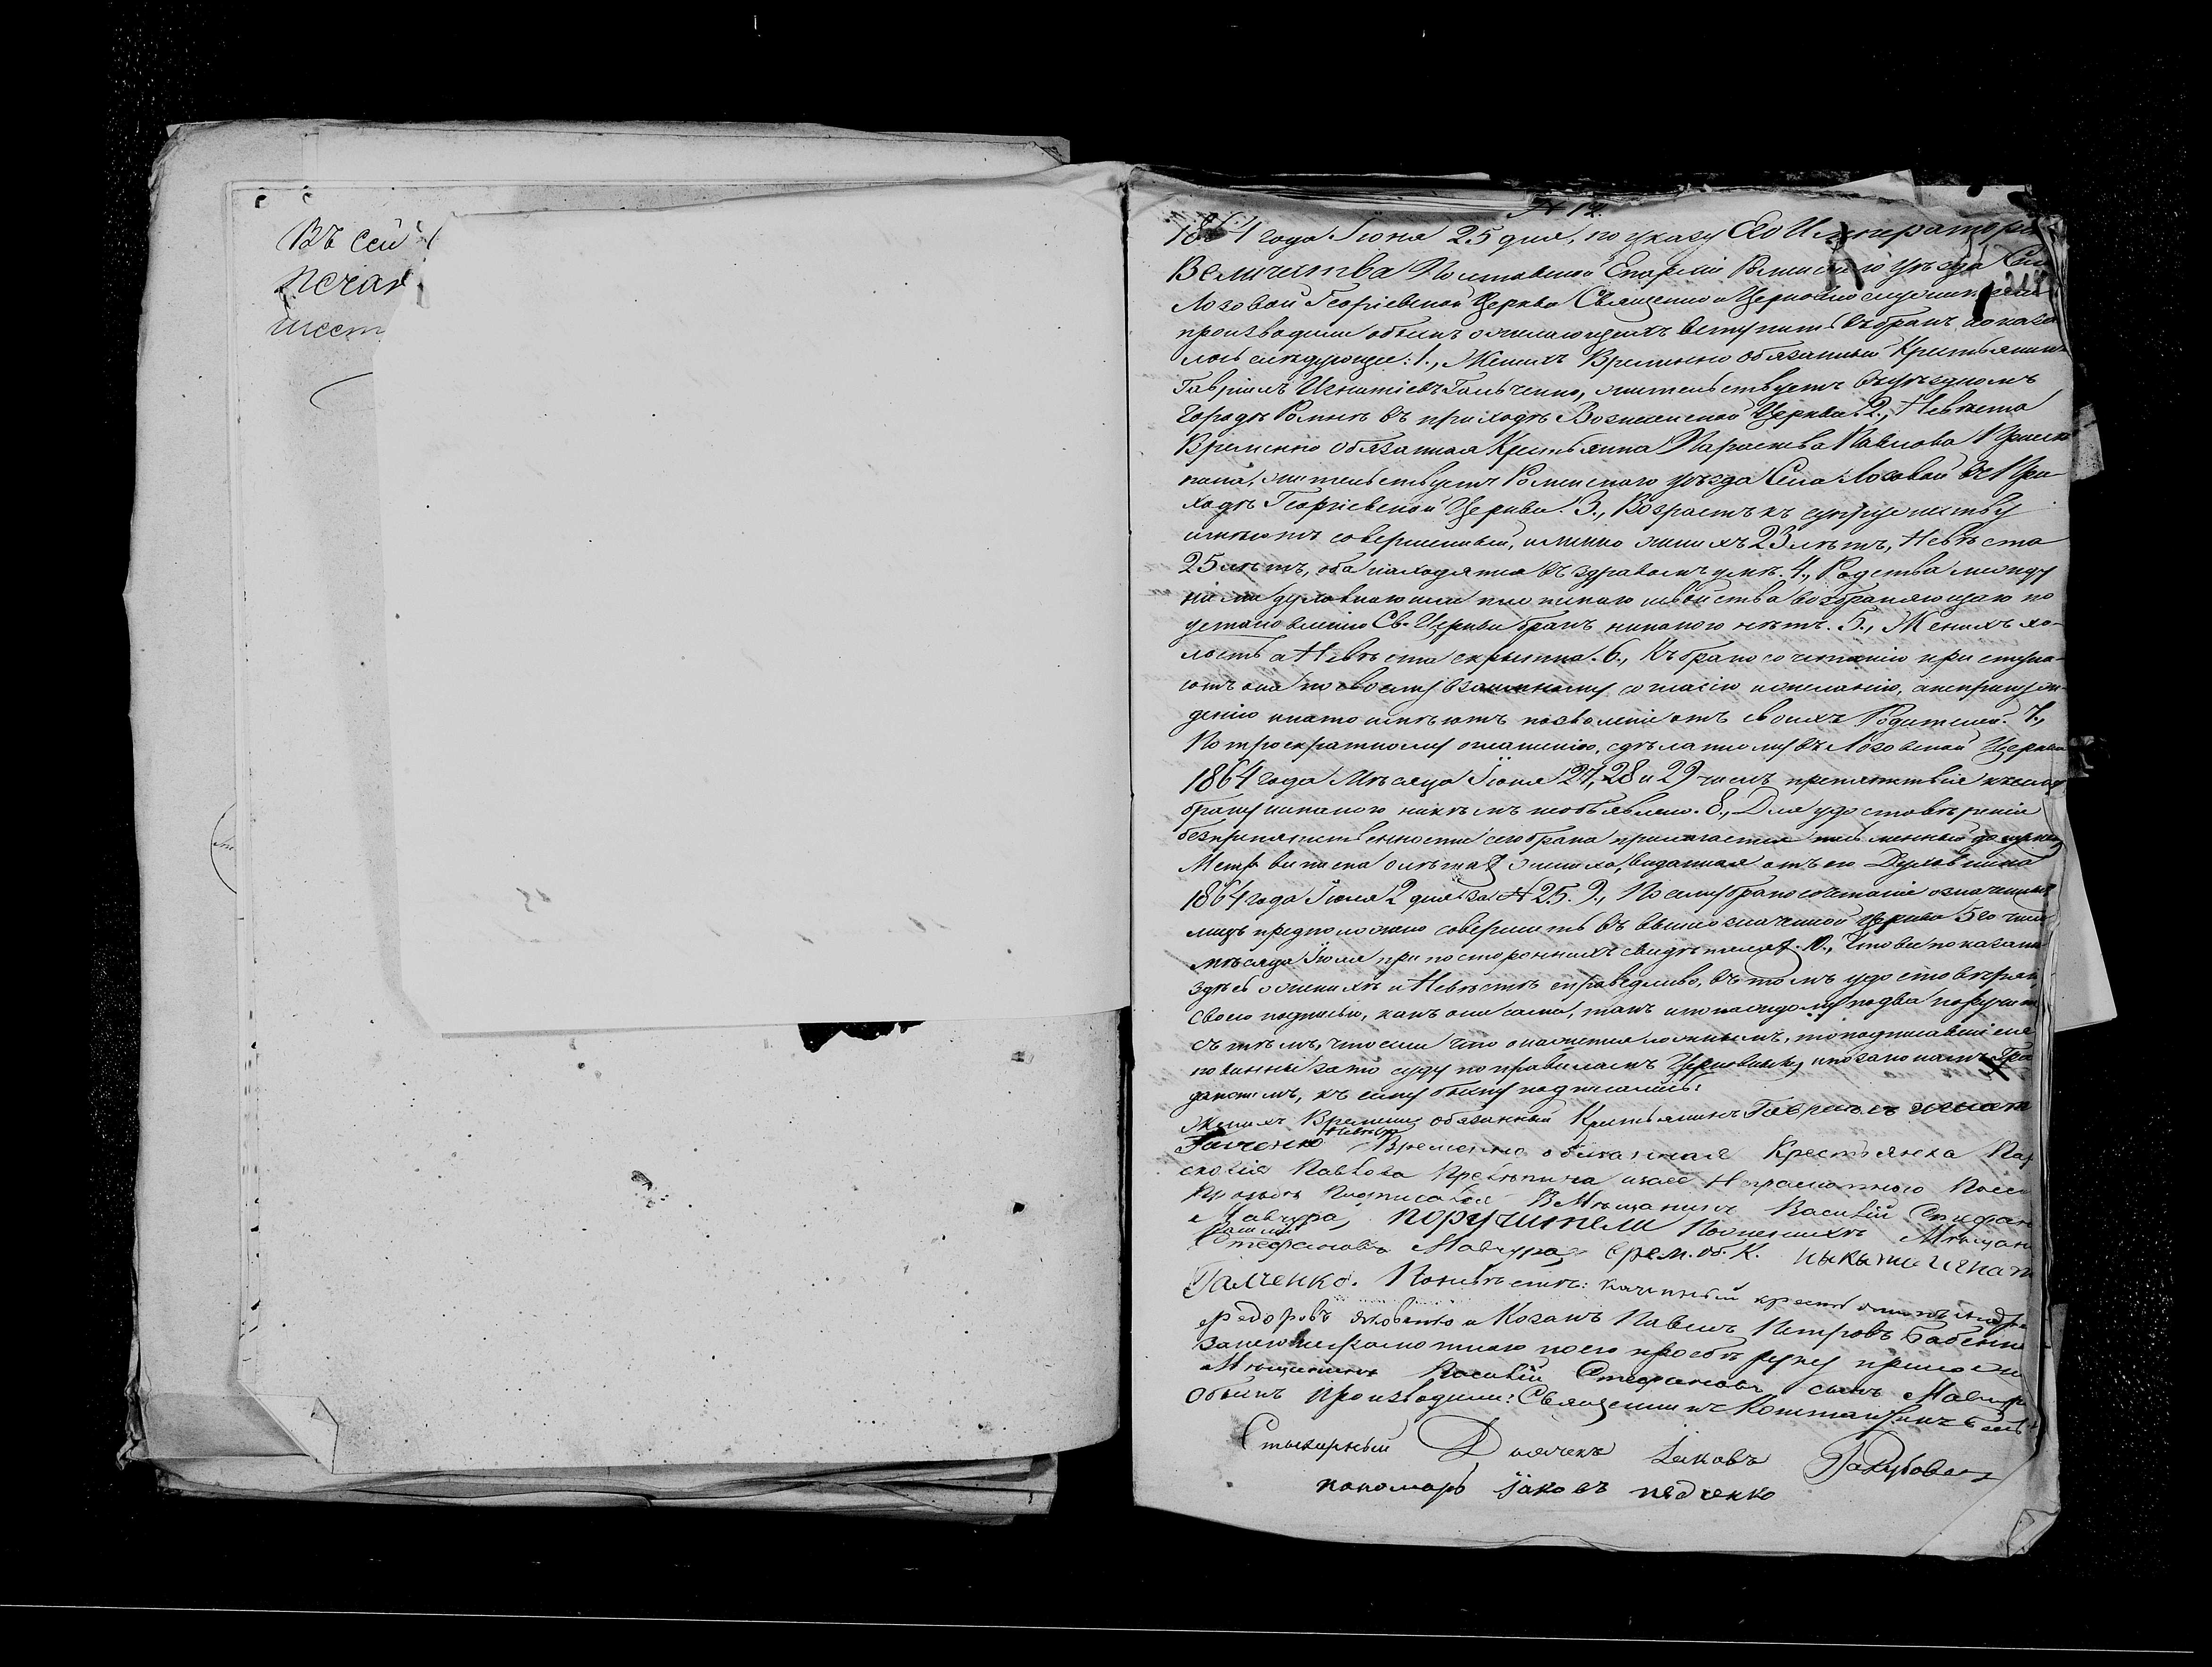 Въ сей
печат
шест
№ 12.
1864 года Іюня 25 дня, по указу Его Императорс
Величества Полтавской Епархіи Роменскаго уѣзда Села
Лозовой Георгіевской Церкви Священно и Церковно служители
производили обыскъ о желающихъ вступить въ бракъ, и оказа
лось слѣдующее: 1., Женихъ Временно обязанный Крестьянинъ
Гавріилъ Игнатіевъ Гальченко, жительствуетъ въ уѣздномъ
Городѣ Ромнѣ въ приходѣ Вознесенской Церкви. 2., Невѣста
Временно обязанная Крестьянка Параскева Павлова
жительствуетъ Роменскаго уѣзда Села Лозовой въ При
ходѣ Георгіевской Церкви. 3., Возрастъ къ супружеству
имѣютъ совершенный, именно женихъ 23 лѣтъ, Невѣста
25 лѣтъ, оба находятся въ здравомъ умѣ. 4., Родства между
ними духовнаго или плотскаго и свойства возбраняющаго по
установленію Св. Церкви бракъ никакого нѣтъ. 5., Женихъ хо-
лостъ а Невѣста 6., Къ бракосочетанію приступа-
ютъ они по своему взаимному согласію и желанію, а не принуж-
денію и на то имѣютъ позволеніе отъ своихъ Родителей. 7.,
По троекратному оглашенію, сдѣланному въ Лозовской Церкви
1864 года Мѣсяца Іюня 27, 28 и 29 чиселъ препятствія къ сему
браку никакого никѣмъ не объявлено. 8., Для удостовѣренія
безпрепятственности сего брака прилагается письменный документ
Метр. выписка о лѣтах жениха, выданная отъ его Духовника
1864 года Іюня 2 дня за № 25. 9., По сему бракосочетаніе означенныхъ
лицъ предположено совершить въ вышеозначенной Церкви 5го числа
мѣсяца Іюля при постороннихъ свидѣтелях. 10., Что все показанное
здѣсь о женихѣ и Невѣстѣ справедливо, въ томъ удостовѣряютъ
своею подписью, какъ они сами, такъ и по каждому по два поручит.
съ тѣмъ, что если что окажется ложнымъ, то подписавшіеся
повинны за то суду по правиламъ Церковнымъ и по законамъ Гра
жданскимъ, къ сему обыску подписались:
Женихъ Временно обязанный Крестьянинъ Гавриилъ Игнат
Галченко Невѣста Временно обязанная Крестьянка Пар
Павлова а за ее Неграмотною по ее
прозьбѣ подписался Мѣщанинъ Василій Стефан
Мавчура, поручители По женихѣ Мѣщан
Василий Стефановъ Мавчура, врем. об. К. Игнат
Галченко. По невѣстѣ: казенный крестьянинъ Андр
Федоровъ и Козакъ Павелъ Петровъ Бабенко
за него неграмотнаго по его прозьбѣ руку приложи
Мѣщанинъ Василій Стефановъ сынъ Мавчур
Обыскъ производили: Священникъ Константинъ
Дьячекъ Іаковъ
пономарь Іаковъ педченко